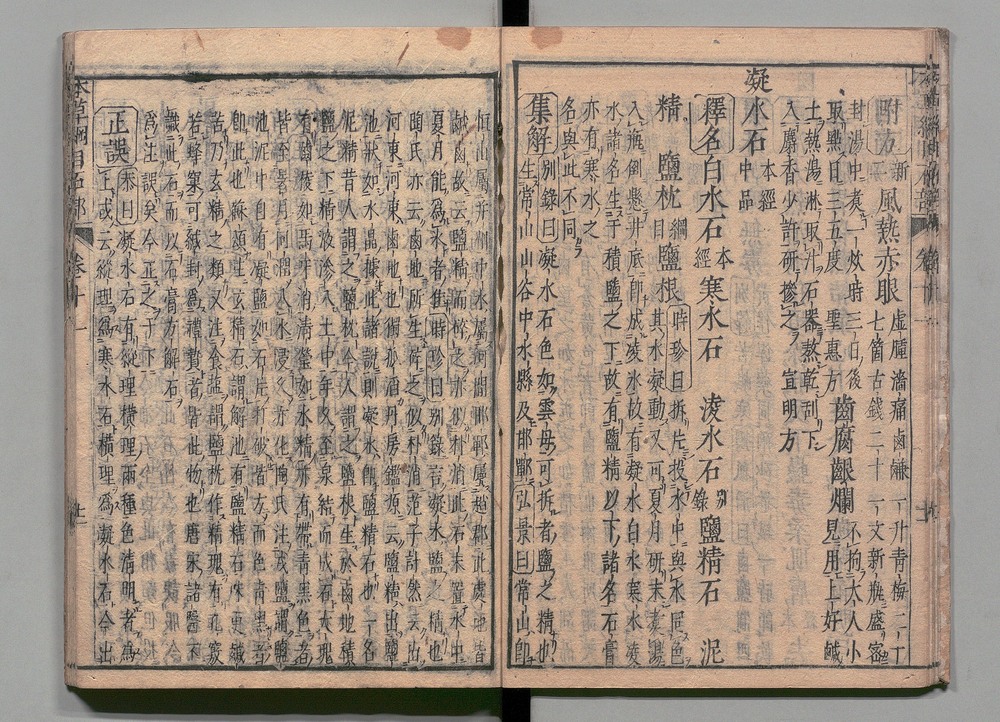 附方 新二 風熱赤眼 虛腫濇痛鹵鹻一升青梅二十
七箇古錢二十一文新瓶盛密
封湯中煮一炊時三日後
取點日三五度聖惠方
齒腐齦爛 不拘大人小
兒用上好鹻
土熱湯淋取汁石器熬乾刮下
入麝香少許研摻之宣明方
凝水石 本經中品
釋名 白水石 本經 寒水石 凌水石 別錄 鹽精石 泥
精 鹽枕 綱目 鹽根 時珍曰拆片投水中與水同色
其水凝動又可夏月研末煮湯
入瓶倒懸井底即成凌冰故有凝水白水寒水凌
水諸名生于積鹽之下故有鹽精以下諸名石膏
亦有寒水之
名與此不同
集解 別錄曰凝水石色如雲母可拆者鹽之精也
生常山山谷中水縣及邯鄲弘景曰常山即
恒山屬并州中水屬河間邯鄲屬趙郡此處地皆
鹹鹵故云鹽精而碎之亦似朴消此石末置水中
夏月能爲冰者佳時珍曰別錄言凝水鹽之精也
陶氏亦云鹵地所生碎之似朴消范子計然云出
河東河東鹵地也獨孤滔丹房鑑源云鹽精出鹽
池狀如水晶據此諸說則凝水即鹽精石也一名
泥精昔人謂之鹽枕今人謂之鹽根生於鹵地積
鹽之下精液滲入土中年久至泉結而成石大塊
有齒稜如馬牙消清瑩如水精亦有帶青黑色者
皆至暑月回潤入水浸久亦化陶氏注戎鹽謂鹽
池泥中自有凝鹽如石片打破皆方而色青黑者
即此也蘇頌注玄精石謂解池有鹽精石味更鹹
苦乃玄精之類又注食鹽謂鹽枕作精塊有孔竅
若蜂窠可緘封爲禮贄者皆此物也唐宋諸醫不
識此石而以石膏方解石
爲注誤矣今正之于下
正誤 恭曰凝水石有縱理橫理兩種色清明者爲
上或云縱理爲寒水石橫理爲凝水石今出
本草綱目石部 卷十一